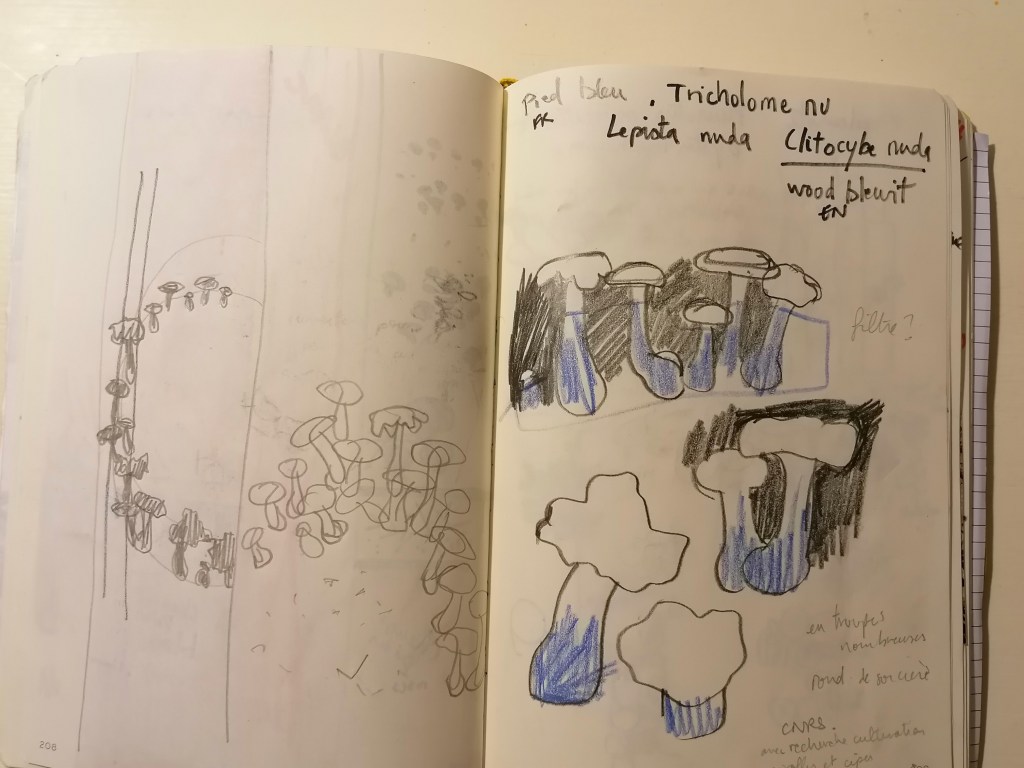 pied bleu . Tricholome nu
FR
Lepista nuda Clitocybe nuda
wood blewit
EN
filtre?
en troupes
nombreuses
rond de sorcière
CNRS.
recherche cultivation
et cèpes
208